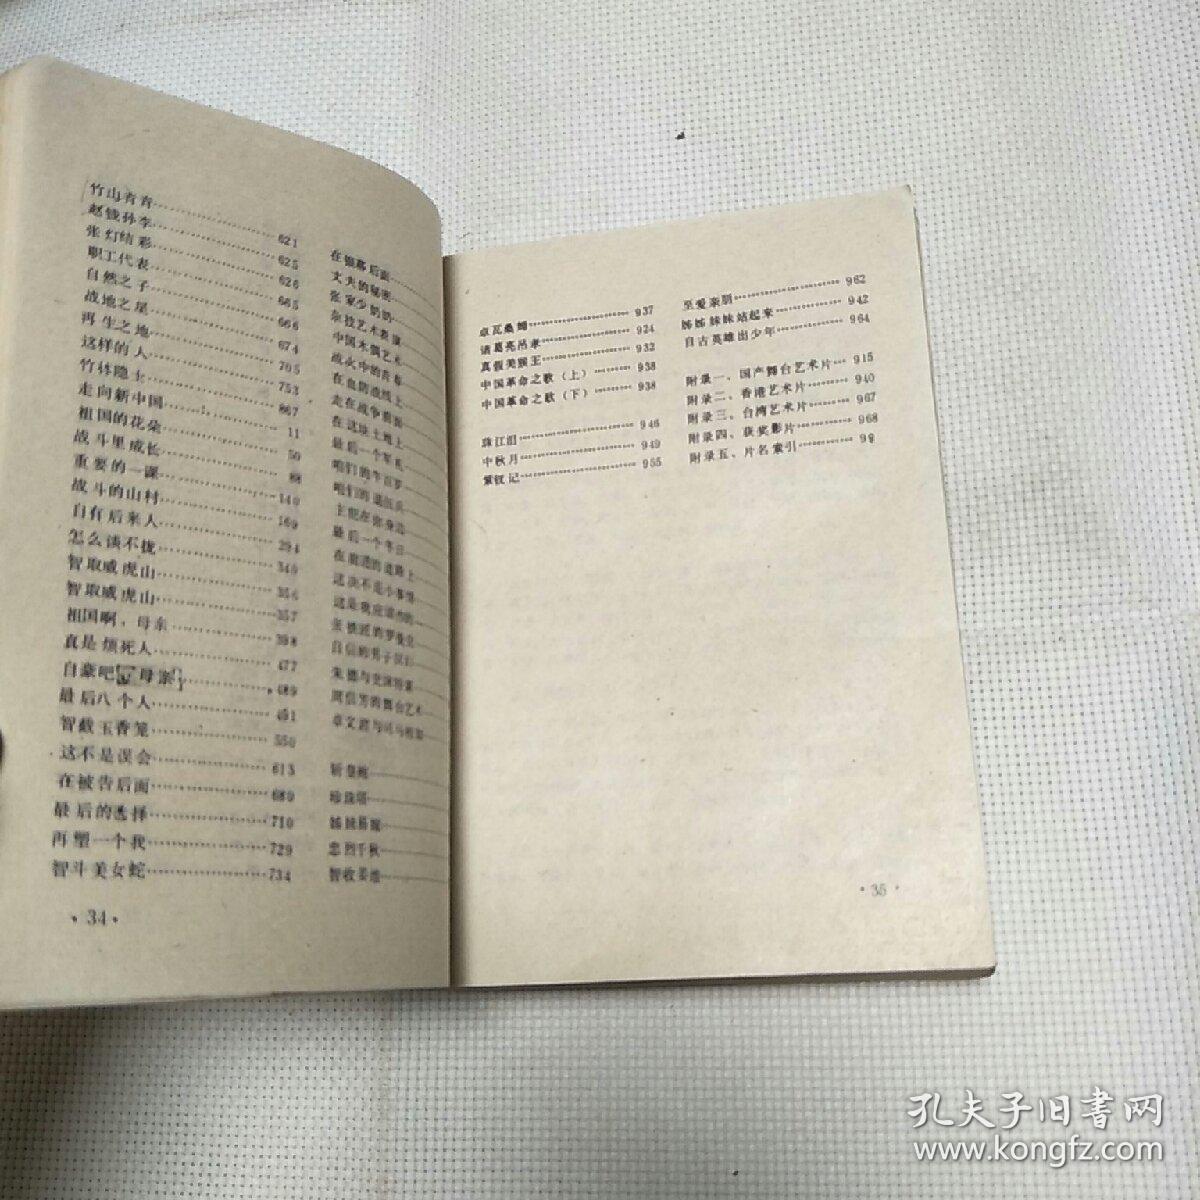 竹山青青
赵钱孙李……621
张灯结彩……625
职工代表……626
自然之子……665
战地之星……666
再生之地……674
这样的人……705
竹林隐士……753
走向新中国……867
祖国的花朵……11
战斗里成长……50
重要的一课……88
战斗的山村……140
自有后来人……169
怎么谈不拢……294
智取威虎山……340
智取威虎山……356
祖国啊，母亲……357
真是烦死人……398
自豪吧 母亲……477
最后八个人……489
智截玉香笼……491
这不是误会……550
在被告后面……613
最后的选择……689
再塑一个我……710
智斗美女蛇……729
734
·34·
在银幕后面
丈夫的秘密
张家少奶奶
杂技艺术表演
中国木偶艺术
战火中的青春
在血防战线上
走在战争前面
在这块土地上
最后一个军礼
咱们的牛百岁
咱们的退伍兵
主犯在你身边
最后一个冬日
在前进的道路上
这决不是小事情
这是我应该作的
张铁匠的罗曼史
自信的男子汉们
朱德与史沫特莱
周信芳的舞台艺术
卓文君与司马相如
斩皇袍
珍珠塔
姊妹易嫁
忠烈千秋
智收姜维
卓瓦桑姆……937
诸葛亮吊孝……924
真假美猴王……932
中国革命之歌（上）……938
中国革命之歌（下）……938
珠江泪……946
中秋月……949
紫钗记……955
至爱亲朋……962
姊姊妹妹站起来……942
自古英雄出少年……964
附录一、国产舞台艺术片……915
附录二、香港艺术片……940
附录三、台湾艺术片……967
附录四、获奖影片……968
附录五、片名索引
·35·
孔夫子旧書网
www.kongfz.com